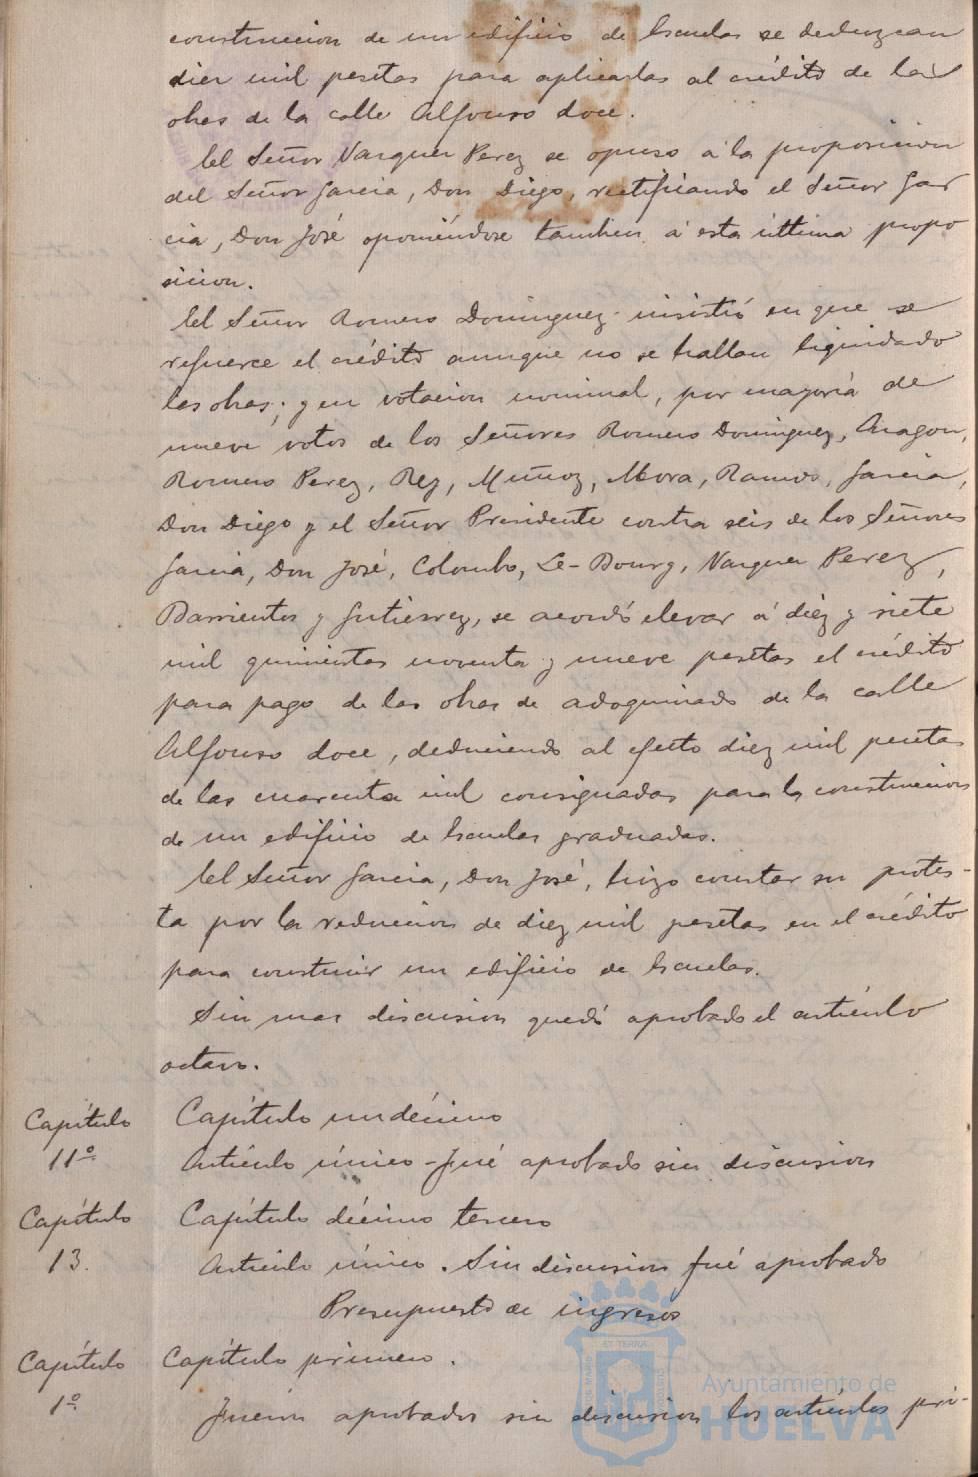 construccion de un edificio de Escuelas se deduzcan
diez mil pesetas para aplicarlas al crédito de las
obras de la calle Alfonso doce.
El Señor Vazquez Perez se opuso á la proposicion
del Señor Garcia, Don Diego, rectificando el Señor Gar
cia, Don José oponiéndose tambien á esta última propo
sicion.
El Señor Romero Dominguez insistió en que se
refuerce el crédito aunque no se hallan liquidado
las obras; y en votacion nominal, por mayoría de
nueve votos de los Señores Romero Dominguez, Aragon,
Romero Perez, Rey, Muñoz, Mora, Ramos, Garcia,
Don Diego y el Señor Presidente contra seis de los Señores
Garcia, Don José, Colombo, Le-Bourg, Vazquez Perez,
Barrientos y Gutierrez, se acordó elevar á diez y siete
mil quinientas noventa y nueve pesetas el crédito
para pago de las obras de adoquinado de la calle
Alfonso doce, deduciendo al efecto diez mil pesetas
de las cuarenta mil consignadas para la construccion
de un edificio de Escuelas graduadas.
El Señor Garcia, Don José, hizo constar su protes-
ta por la reduccion de diez mil pesetas en el crédito
para construir un edificio de Escuelas.
Sin mas discusion quedó aprobado el artículo
octavo.
Capítulo Capítulo undécimo
11º Artículo único - Fué aprobado sin discusion
Capítulo Capítulo décimo tercero
13. Artículo único. Sin discusion fué aprobado
Presupuesto de ingresos
Capítulo Capítulo primero.
1º Fueron aprobados sin discusion los artículos pri-
Ayuntamiento de
HUELVA